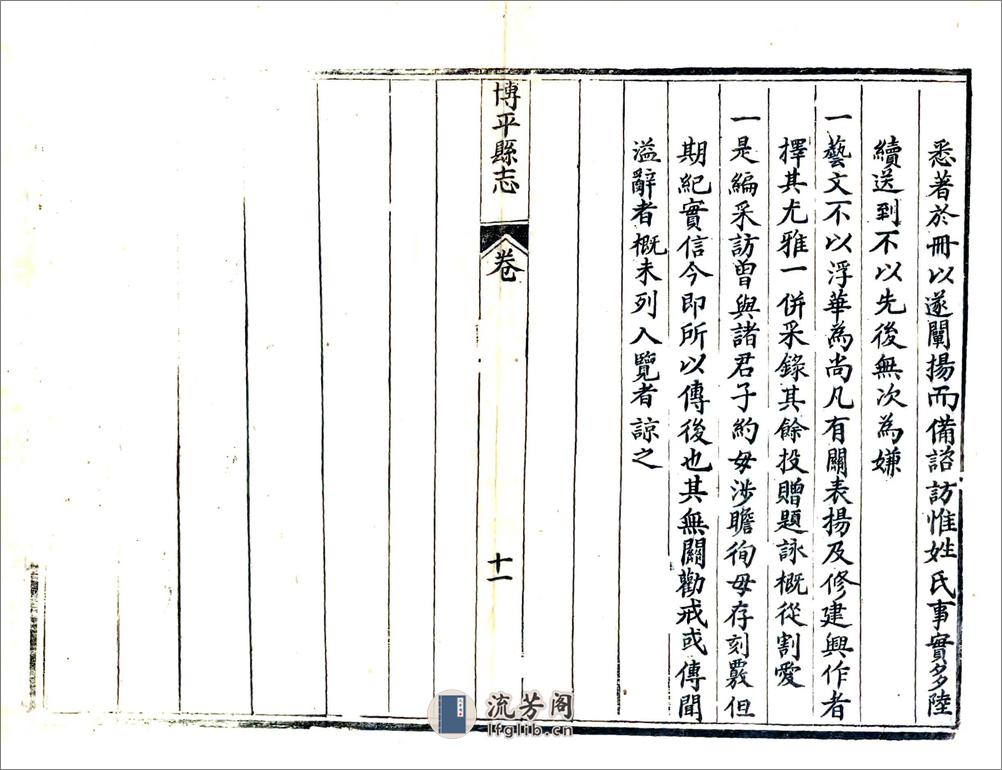 悉著於冊以遂闡揚而備諮訪惟姓氏事實多陸
續送到不以先後無次為嫌
一藝文不以浮華為尚凡有關表揚及修建興作者
擇其尤雅一併采錄其餘投贈題詠概從割愛
一是編采訪曾與諸君子約毋涉瞻徇毋存刻覈但
期紀實信今即所以傳後也其無關勸戒或傳聞
溢辭者概未列入覽者諒之
博平縣志
卷
十一
流芳阁
lfglib.cn